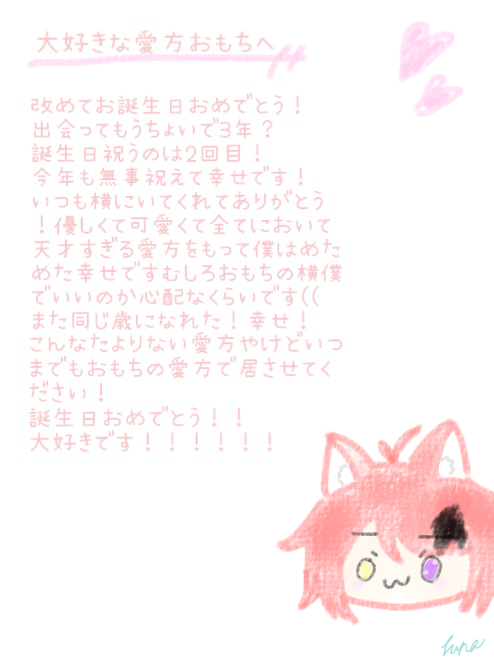 大好きな愛方おもちへ
改めてお誕生日おめでとう！
出会ってもうちょいで3年？
誕生日祝うのは2回目！
今年も無事祝えて幸せです！
いつも横にいてくれてありがとう
！優しくて可愛くて全てにおいて
天才すぎる愛方をもって僕はめた
めた幸せですむしろおもちの横僕
でいいのか心配なくらいです((
また同じ歳になれた！幸せ！
こんなたよりない愛方やけどいつ
までもおもちの愛方で居させてく
ださい！
誕生日おめでとう！！
大好きです！！！！！！
luna